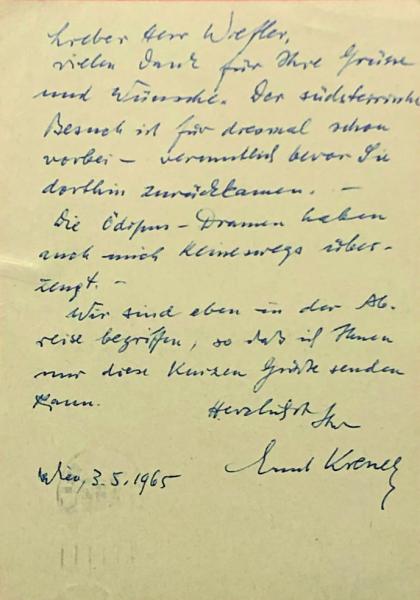 Lieber Herr Wefler,
vielen Dank für Ihre Grüsse
und Wünsche. Der
Besuch ist für diesmal schon
vorbei – vermutlich bevor Sie
dorthin zurückkamen. –
Die Ödipus-Dramen haben
auch mich keineswegs über-
zeugt. –
Wir sind eben in der Ab-
reise begriffen, so daß ich Ihnen
nur diese kurzen Grüße senden
kann.
Herzlichst Ihr
Ernst Krenek
Wien, 3.5.1965